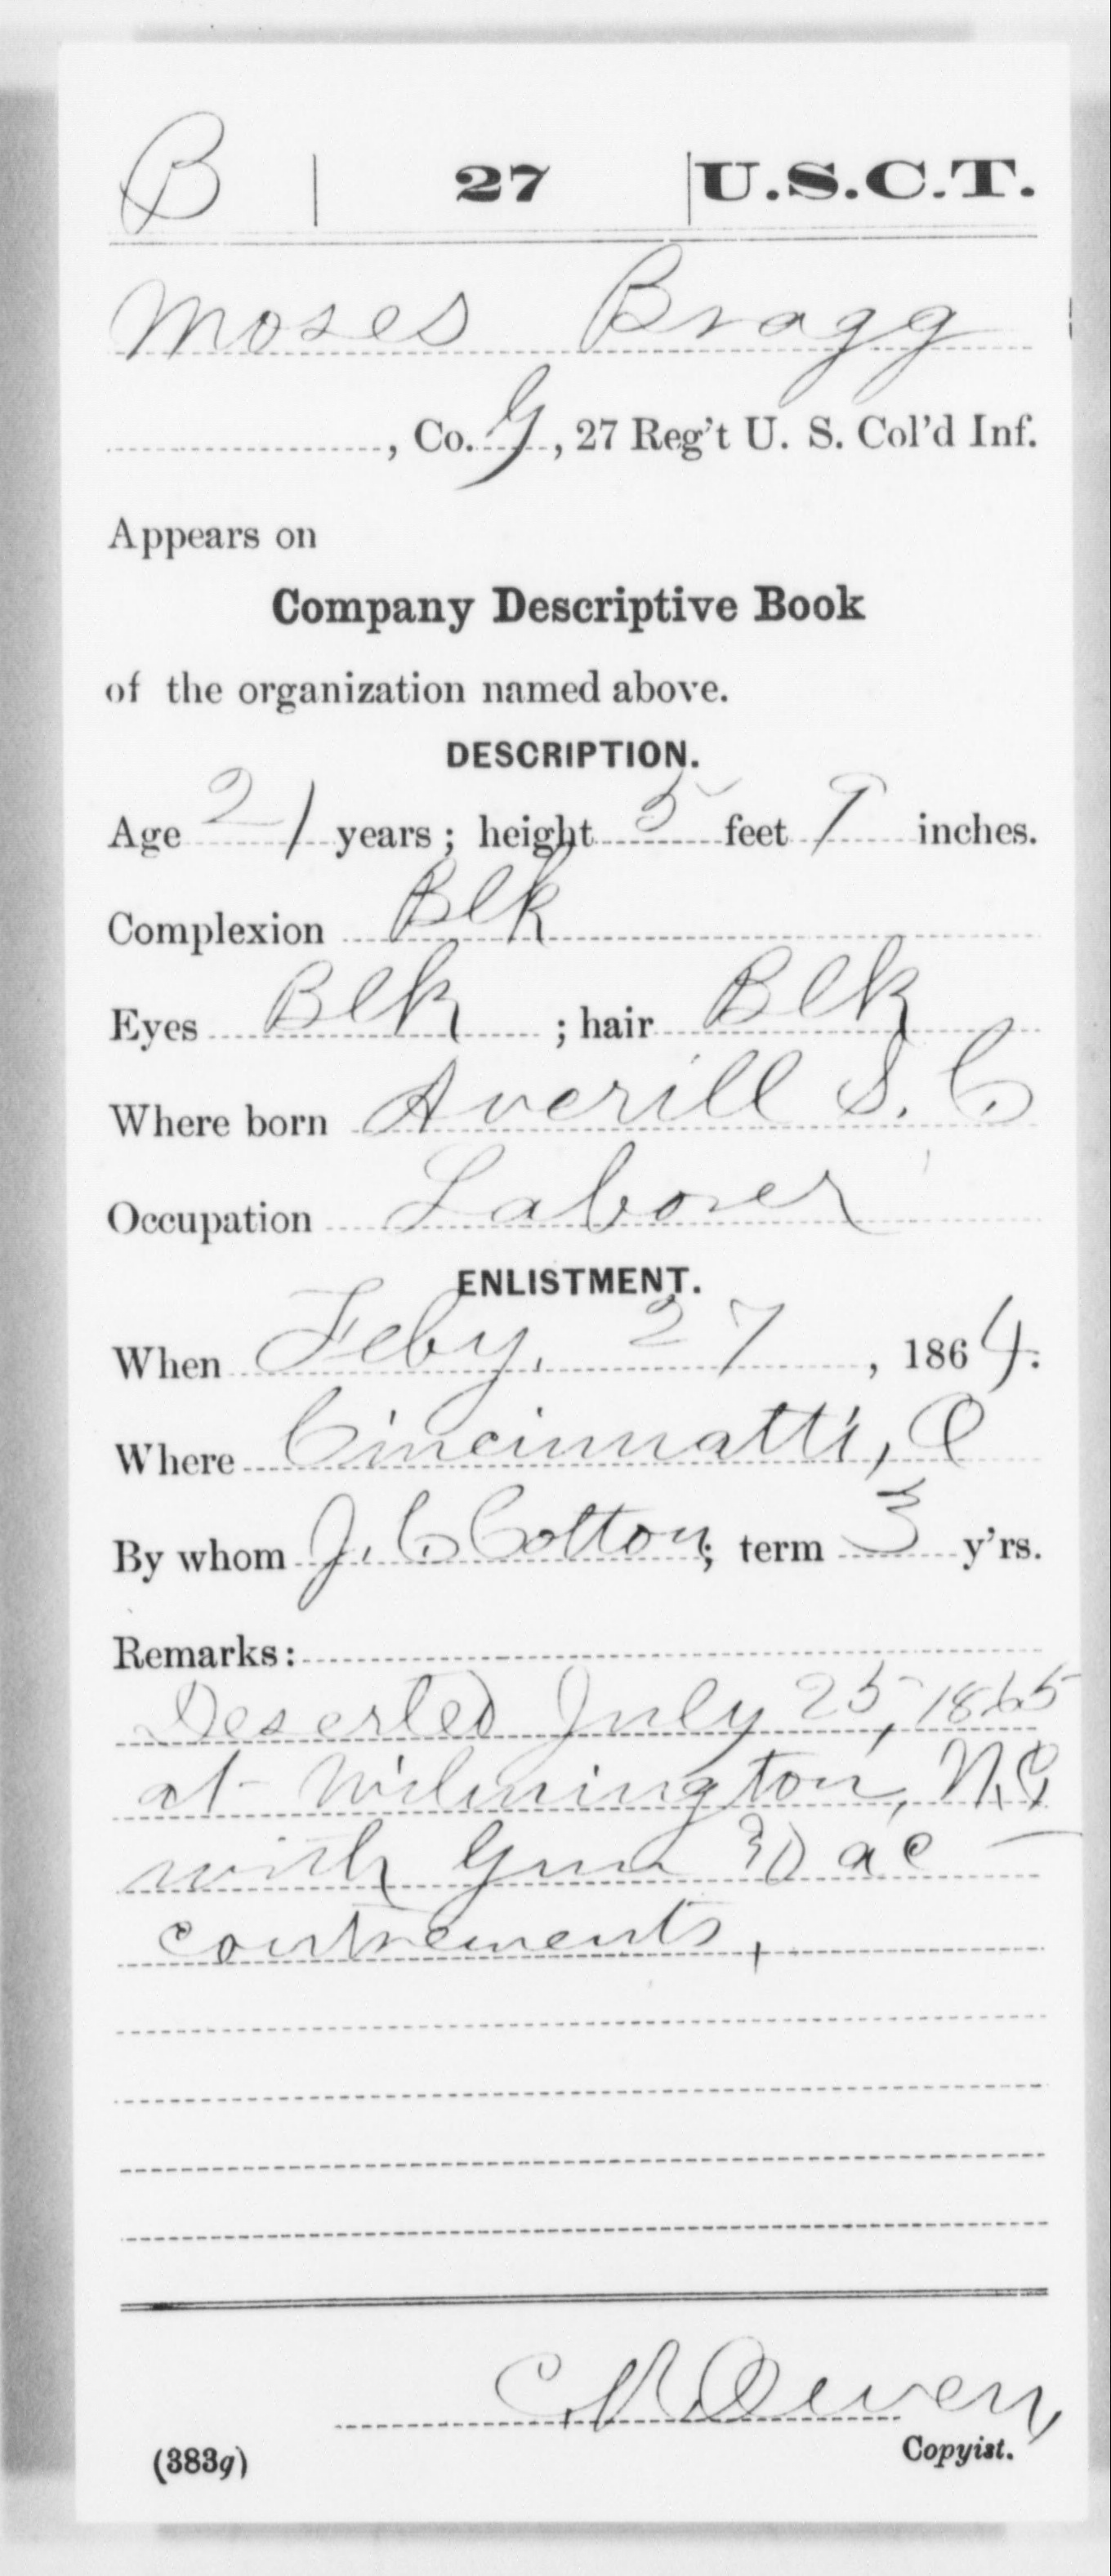 B | 27 | U.S.C.T.
Moses Bragg
, Co. G, 27 Reg't U. S. Col'd Inf.
Appears on
Company Descriptive Book
of the organization named above.
DESCRIPTION.
Age 21 years; height 5 feet 9 inches.
Complexion Blk
Eyes Blk ; hair Blk
Where born Averill S. C
Occupation Laborer
ENLISTMENT.
When Feby. 27, 1864.
Where Cincinnatti, O
By whom J. C Cotton; term 3 y'rs.
Remarks:
Deserted July 25, 1865
at Wilmington, N.C
with Gun ac-
coutrements.
Owen
Copyist.
(383g)